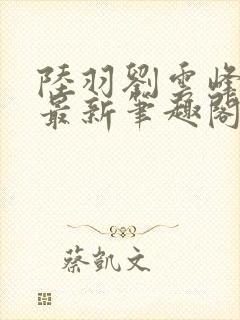 陸羽劉雲峰
最新筆趣閣
蔡凱文